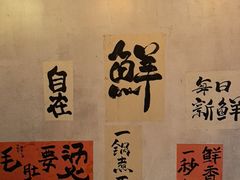 自在
鮮
每日
新鮮
毛肚要燙
一鍋煮
鮮香
一秒